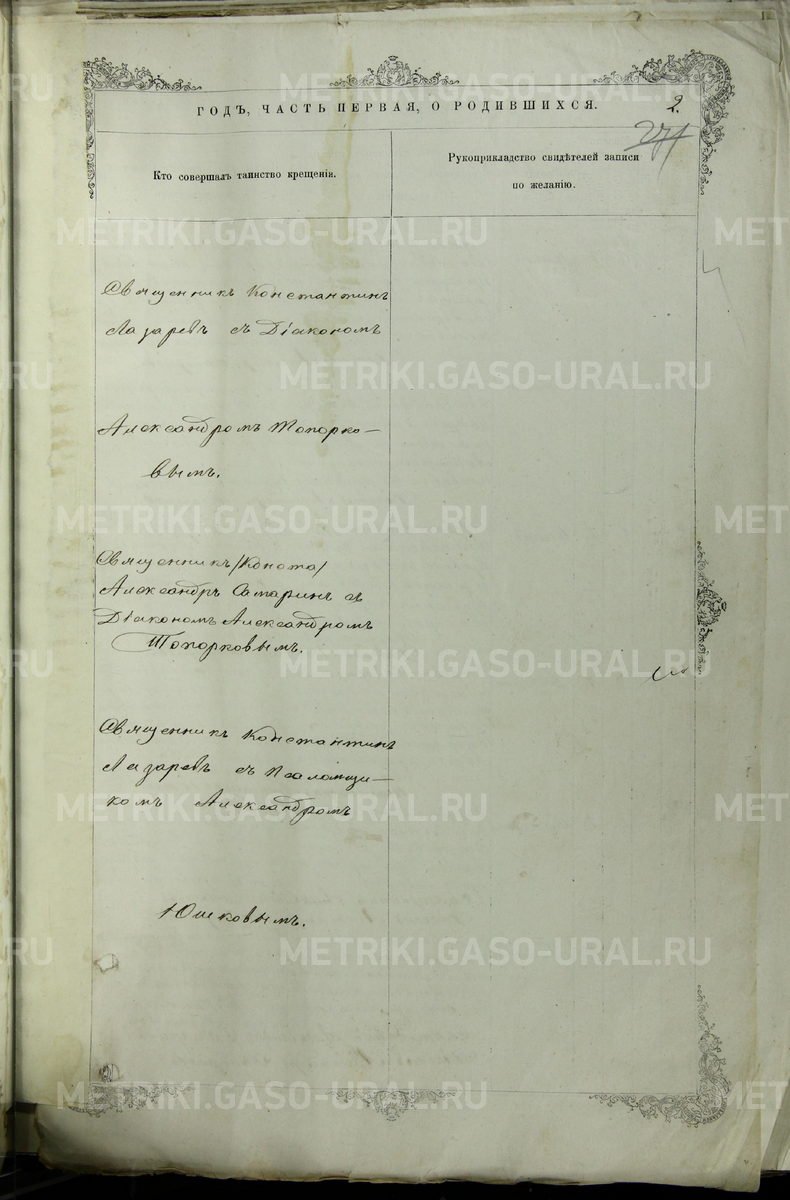 ГОДЪ, ЧАСТЬ ПЕРВАЯ, О РОДИВШИХСЯ.
2.
271
Кто совершалъ таинство крещенія.
Рукоприкладство свидѣтелей записи
по желанію.
Священникъ Константинъ
Лазаревъ съ Діакономъ
Александромъ Топорко–
вымъ.
Священникъ
Александръ Самаринъ съ
Діакономъ Александромъ
Топорковымъ.
Священникъ Константинъ
Лазаревъ съ Псаломщи–
комъ Александромъ
Юшковымъ.
METRIKI.GASO-URAL.RU